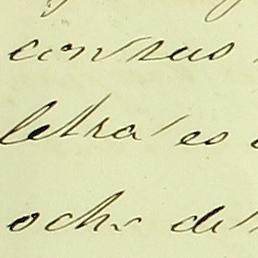 con sus
letra es
ocho de